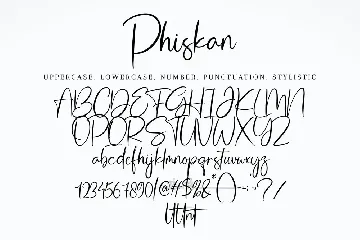 Phiskan
UPPERCASE, LOWERCASE, NUMBER, PUNCTUATION, STYLISTIC
ABCDEFGHIJKLMN
OPQRSTUVWXYZ
abcdefghijklmnopqrstuvwxyz
1234567890!@#$%&*()-:?/